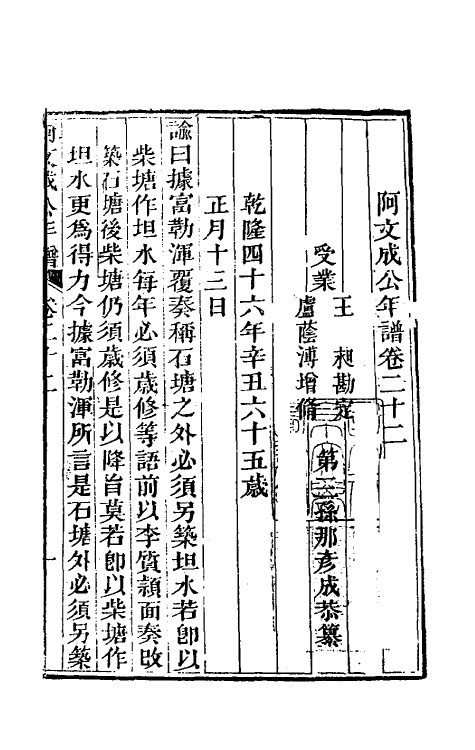 阿文成公年譜卷二十二
第三孫那彥成恭纂
受業
王昶勘定
盧蔭溥增修
乾隆四十六年辛丑六十五歲
正月十三日
諭曰據富勒渾覆奏稱石塘之外必須另築坦水若卽以
柴塘作坦水每年必須歲修等語前以李質頴面奏改
築石塘後柴塘仍須歲修是以降旨莫若卽以柴塘作
坦水更爲得力今據富勒渾所言是石塘外必須另築
阿文成公年譜
卷二十二
一